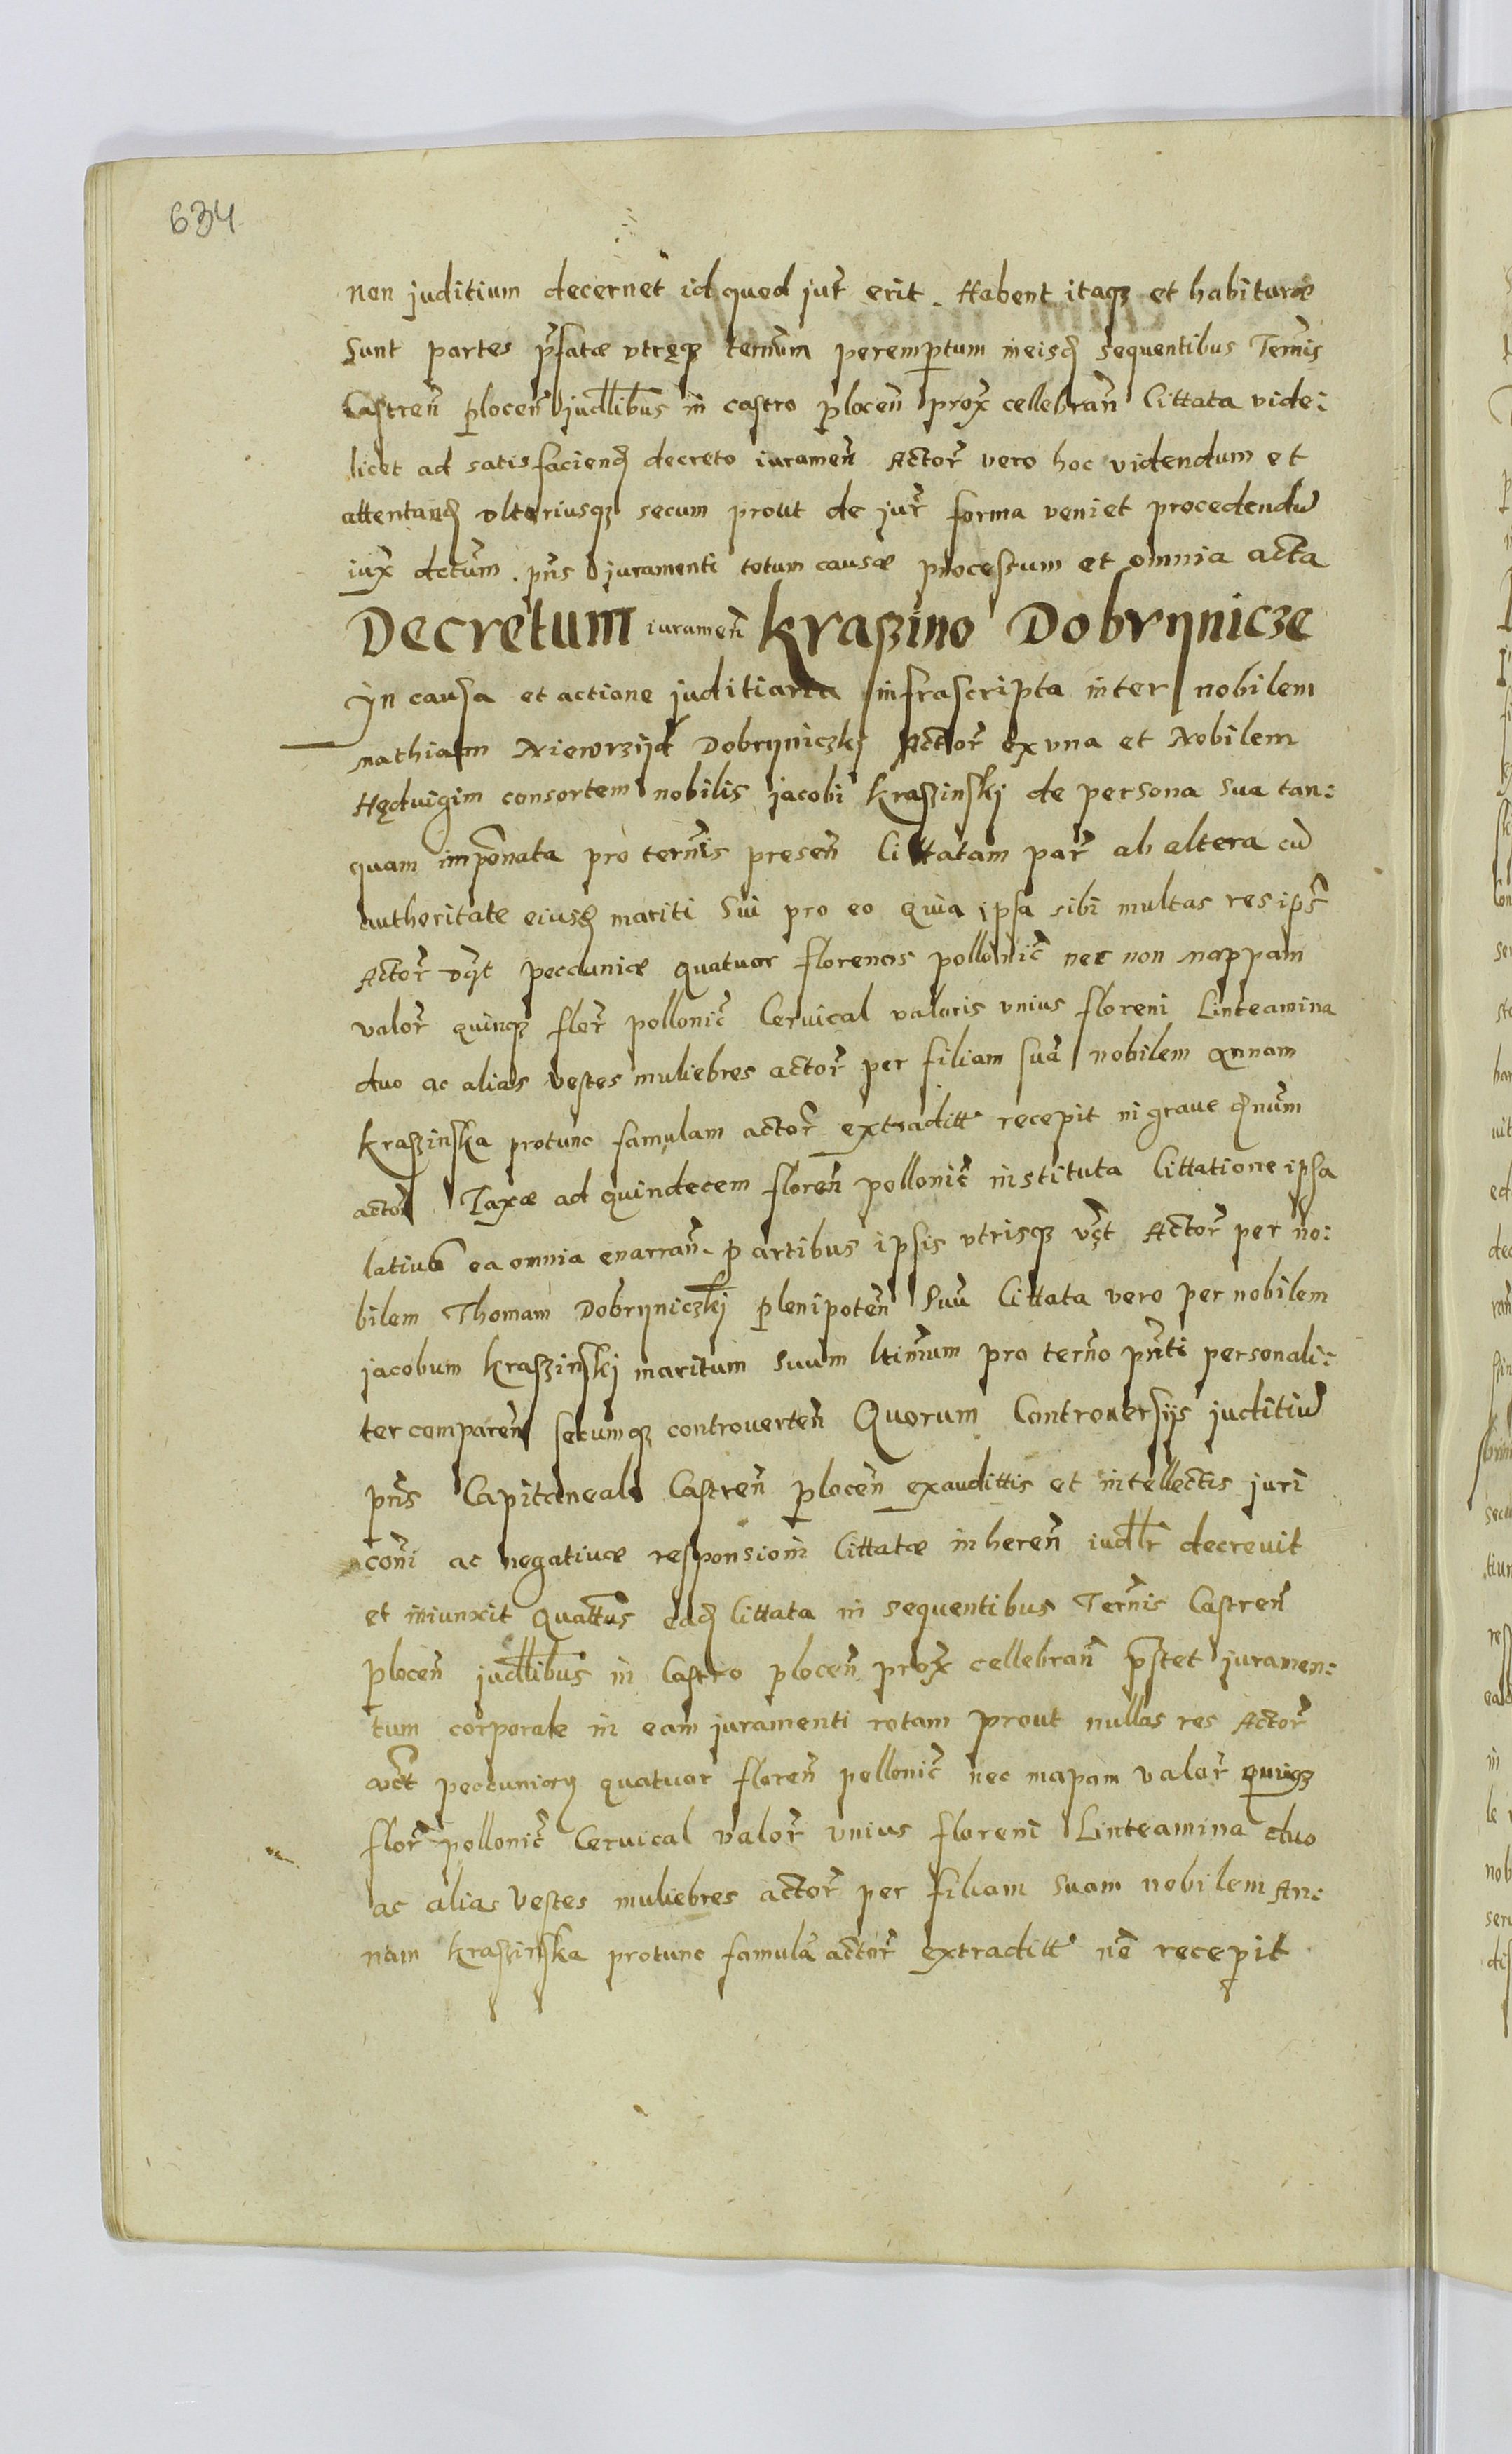 634
non juditium decernet id quod jur̃ erit. Habent itaqꝫ et habituræ
Sunt partes p̃fatæ vtręqꝫ termum peremptum in eisd̃ sequentibus Term̃is
Castreñ plocen̄ judl̃libus in castro plocen̄ prox̃ cellebrañ Cittata vide:
licet ad satisfaciend̃ decreto iurameñ Actor̃ vero hoc videndum et
attentand̃ vlteriusqꝫ secum prout de jur̃ forma veniet procedendũ
iux̃ dectũm . pñs juramenti totum causæ processum et omnia acta
Decretum iurameñ Kraszino Dobrynicze
In causa et actione juditiaria infrascripta inter nobilem
Mathiam Niewrzijd Dobryniczkj Actor̃ ex vna et Nobilem
Hędvigim consortem nobilis jacobi Kraszinskj de persona sua tan:
quam impõnata pro term̃is preseñ Cittatam par̃ ab altera cũ
autheritate eiusd̃ mariti Sui pro eo quia ipsa sibi multas res ips̃
Actor̃ vįt peccuniæ quatuor florenos pollonic̃ nec non mappam
valor̃ quinqꝫ flor̃ pollonic̃ Ceruical valoris vnius floreni Linteamina
duo ac alias vestes muliebres actor̃ per filiam suã nobilem Annam
Kraszinska protunc famulam actor̃ extraditt̃ recepit in graue d̃num
actor̃ Taxæ ad quindecem floreñ pollonic̃ instituta Cittatione ipsa
latius ea omnia enarrañ. partibus ipsis vtrisqꝫ vįt Actor̃ per no:
bilem Thomam Dobryniczkj plenipoteñ Suũ Cittata vero per nobilem
jacobum Kraszinskj maritum Suum ltim̃um pro term̃o pñti personali:
ter compareñ secumqꝫ controuerteñ Quorum Controuersijs juditiũ
pñs Capitaneale Castreñ plocen̄ exaudittis et intellectis juri
com̃i ac negatiuæ responsioni Cittatæ inhereñ iudl̃lr decreuit
et iniunxit Quatt̃us ead̃ Cittata in sequentibus Term̃is Castreñ
plocen̄ judl̃libus in Castro plocen̄ prox̃ cellebrañ p̃stet juramen:
tum corporale in eam juramenti rotam prout nullas res Actor̃
vįt peccuniarꝫ quatuor floreñ pollonic̃ nec mapam valor̃ quinqꝫ
flor̃ pollonic̃ Ceruical valor̃ vnius floreni Linteamina duo
ac alias vestes muliebres actor̃ per filiam suam nobilem An:
nam Kraszinska protunc famulã actor̃ extraditt̃ nẽ recepit